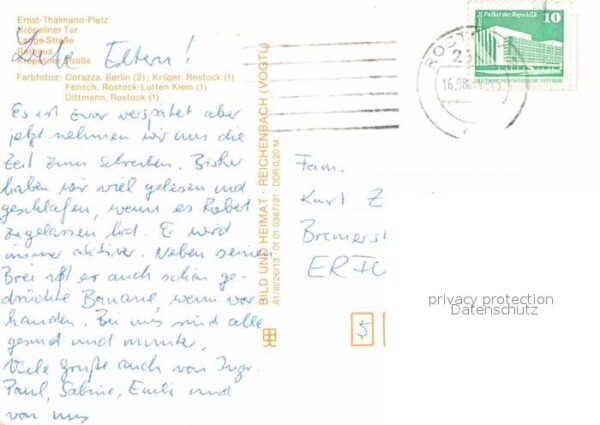 Ernst-Thälmann-Platz
Kröpeliner Tor
Lange Straße
Rathaus
Kröpeliner Straße
Liebe Eltern!
Farbfotos: Corazza, Berlin (2); Krüger, Rostock (1)
Fensch, Rostock-Lütten Klein (1)
Dittmann, Rostock (1)
Es ist zwar verspätet aber
jetzt nehmen wir uns die
Zeit zum Schreiben. Bisher
haben wir viel gelesen und
geschlafen, wenn es Robert
zugelassen hat. Er wird
immer aktiver. Neben seinem
Brei ißt er auch schon ge-
drückte Banane, wenn vor
handen. Bei uns sind alle
gesund und munter.
Viele Grüße auch von Ingr.
Paul, Sabine, Emili und
von uns
BILD UND HEIMAT · REICHENBACH (VOGTL)
A1/III/26/13 01 01 0367/31 · DDR 0,20 M
ROSTOCK
Berlin Palast der Republik
10
DEUTSCHE DEMOKRATISCHE REPUBLIK
Fam.
Kurt Z
Bremerst
ERFU
5
privacy protection
Datenschutz